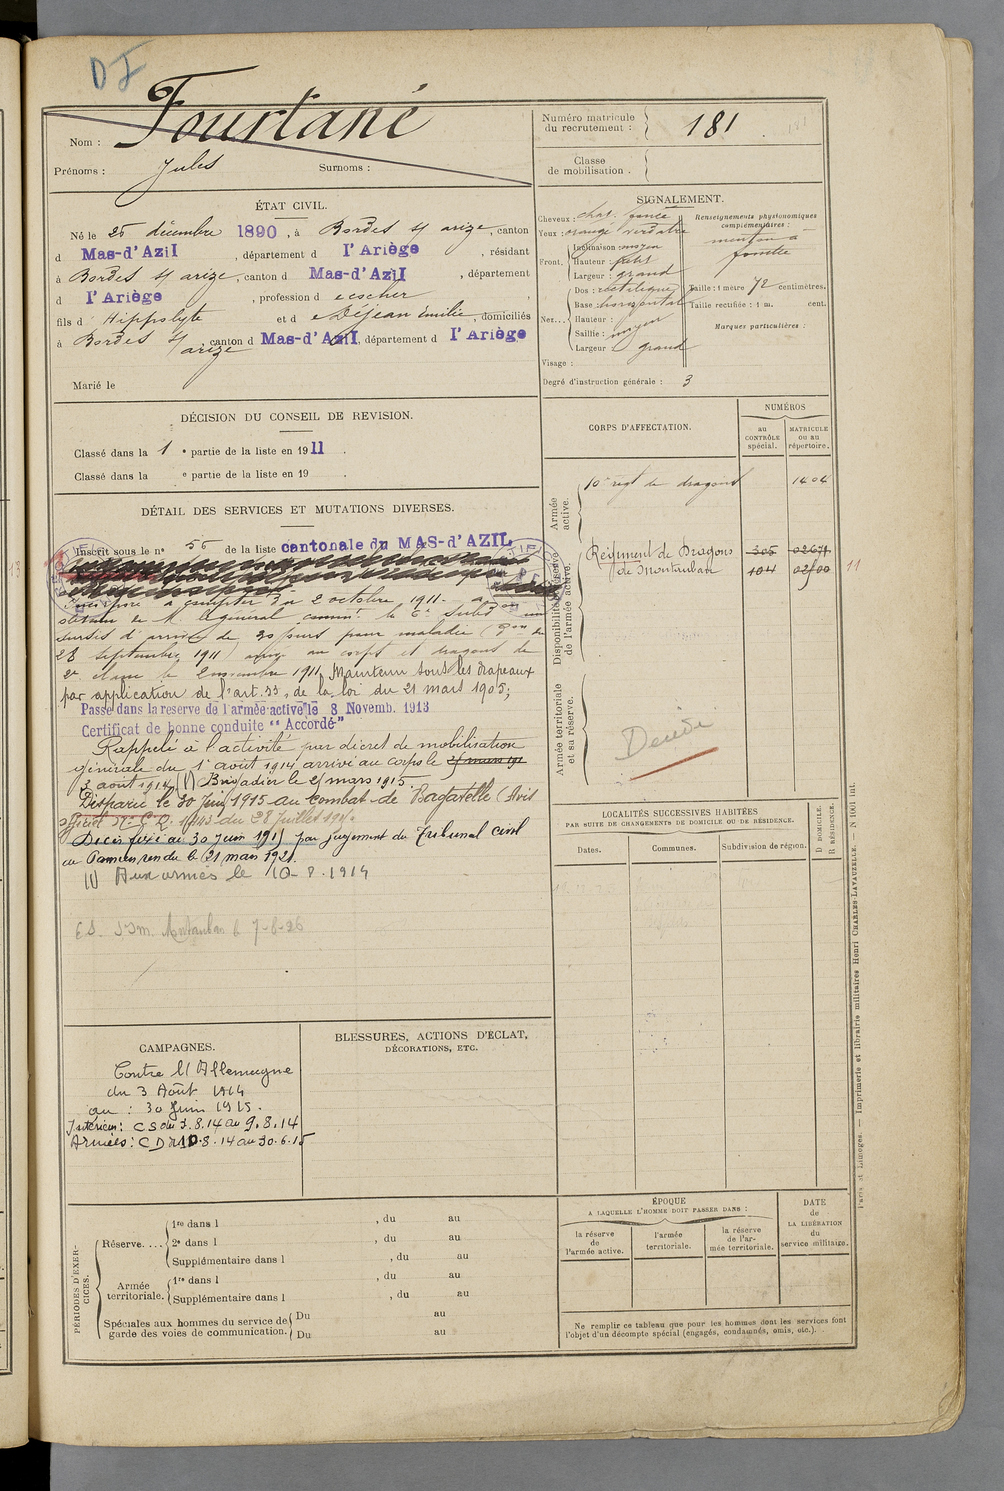 DF
Nom : Fourtané
Prénoms : Jules Surnoms :
Numéro matricule du recrutement : 181
Classe de mobilisation .
ÉTAT CIVIL.
Né le 25 décembre 1890, à Bordes s/ arize, canton
d Mas-d'Azil, département d l'Ariège, résidant
à Bordes s/ arize, canton d Mas-d'Azil, département
d l'Ariège, profession d
fils d Hippolyte et d e Déjean émilie, domiciliés
à Bordes s/ arize, canton d Mas-d'Azil, département d l'Ariège
Marié le
SIGNALEMENT.
Cheveux : chat. foncé
Yeux : orange verdâtre
Front. Inclinaison moyen
Hauteur : petit
Largeur : grand
Nez... Dos : rectiligne
Base : horizontal
Hauteur :
Saillie : moyen
Largeur : grand
Visage :
Degré d'instruction générale : 3
Renseignements physionomiques complémentaires :
menton à
fossette
Taille : 1 mètre 72 centimètres.
Taille rectifiée : 1 m. cent.
Marques particulières :
DÉCISION DU CONSEIL DE REVISION.
Classé dans la 1 e partie de la liste en 1911 .
Classé dans la e partie de la liste en 19 .
CORPS D'AFFECTATION.
NUMÉROS
au CONTRÔLE spécial.
MATRICULE OU AU répertoire.
Armée active.
10e regt de dragons 1404
Disponibilité et réserve de l'armée active.
Régiment de Dragons 305 02671
de Montauban 104 02700 11
Armée territoriale et sa réserve.
Décédé
DÉTAIL DES SERVICES ET MUTATIONS DIVERSES.
Inscrit sous le n° 56 de la liste cantonale du MAS-d'AZIL
Incorporé à compter du 2 octobre 1911. a
obtenu de M. le général comm. la Subd on un
sursis d'arrivée de 30 jours pour maladie
28 septembre 1911) au corps et dragon de
2e classe le 2 novembre 1911, Maintenu sous les drapeaux
par application de l'art. 33, de la loi du 21 mars 1905;
Passé dans la reserve de l'armée active le 8 Novemb. 1913
Certificat de bonne conduite "Accordé"
Rappelé à l'activité par décret de mobilisation
générale du 1er août 1914 arrivé au corps le
3 août 1914 (1) Brigadier le 21 mars 1915
Disparu le 30 Juin 1915 au combat de Bagatelle (Avis
officiel du 28 Juillet
Décès fixé au 30 juin 1915 par jugement du Tribunal civil
de Pamiers, rendu le 21 mars 1921.
(1) Aux armées le 10-8-1914
Montauban 7-6-26
LOCALITÉS SUCCESSIVES HABITÉES
PAR SUITE DE CHANGEMENTS DE DOMICILE OU DE RÉSIDENCE.
Dates. Communes. Subdivision de région.
D DOMICILE.
R RÉSIDENCE.
CAMPAGNES.
Contre l'Allemagne
du 3 Août 1914
au : 30 Juin 1915.
Intérieur : CS du 3.8.14 au 9.8.14
Armées : CD du 10.8.14 au 30.6.15
BLESSURES, ACTIONS D'ÉCLAT,
DÉCORATIONS, ETC.
PÉRIODES D'EXERCICES.
Réserve.... 1re dans l , du au
2e dans l , du au
Supplémentaire dans l , du au
Armée territoriale. 1re dans l , du au
Supplémentaire dans l , du au
Spéciales aux hommes du service de garde des voies de communication. Du au
Du au
ÉPOQUE
A LAQUELLE L'HOMME DOIT PASSER DANS :
la réserve de l'armée active.
l'armée territoriale.
la réserve de l'armée territoriale.
DATE de LA LIBÉRATION du service militaire.
Ne remplir ce tableau que pour les hommes dont les services font
l'objet d'un décompte spécial (engagés, condamnés, omis, etc.).
Paris et Limoges. — Imprimerie et librairie militaires Henri CHARLES-LAVAUZELLE. — N 1001 int